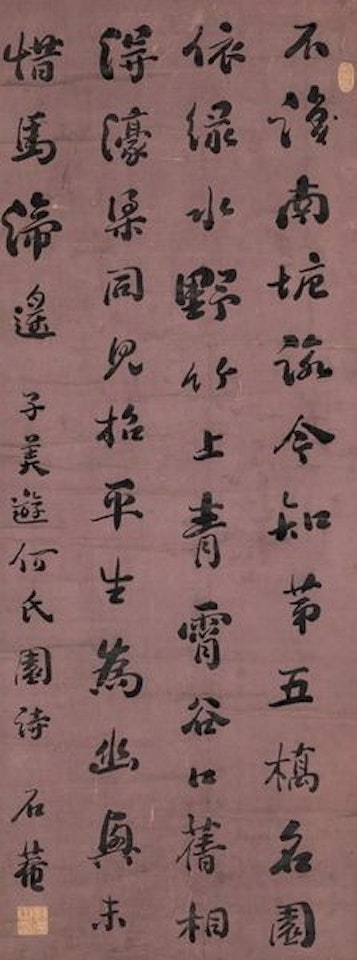 不識南塘路今知第五橋名園
依綠水野竹上青霄谷口舊相
得濠梁同見招平生為幽興未
惜馬蹄遙 子美遊何氏園詩 石菴